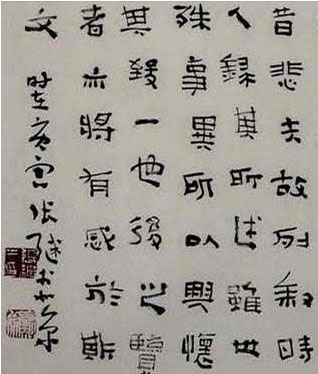 昔悲夫故列叙時
人錄其所述雖世
殊事異所以興懷
其致一也後之覽
者亦將有感於斯
文 时在庚寅张继